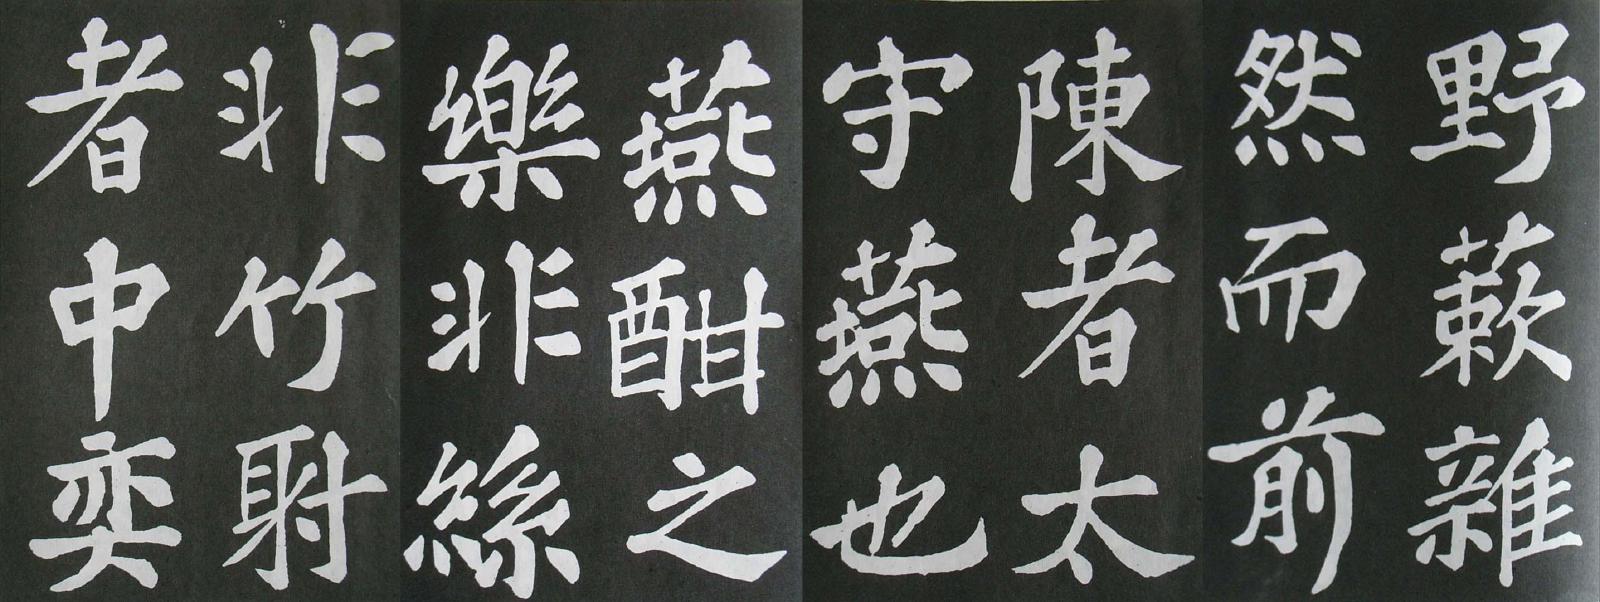 野蔌雜
然而前
陳者太
守燕也
燕酣之
樂非絲
非竹射
者中奕